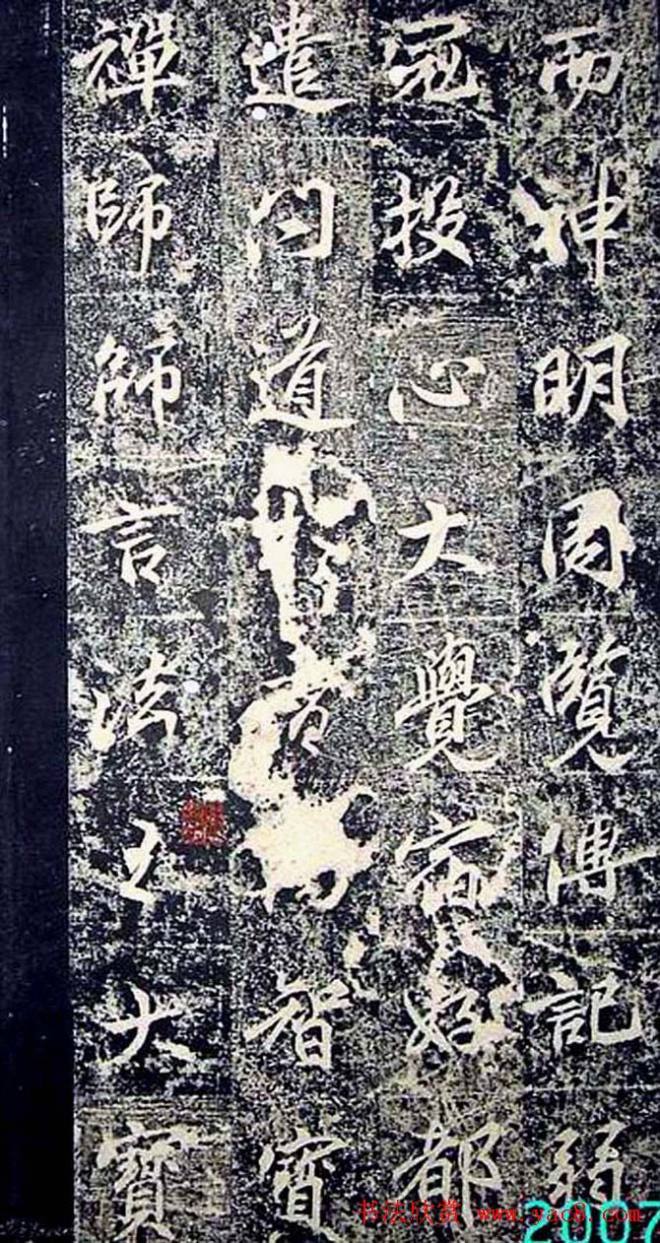 而神明周覽傳記弱
冠投心大覺宿好都
遣問道智寶
禪師師言法王大寶
书法欣赏 www.yac8.com
2007